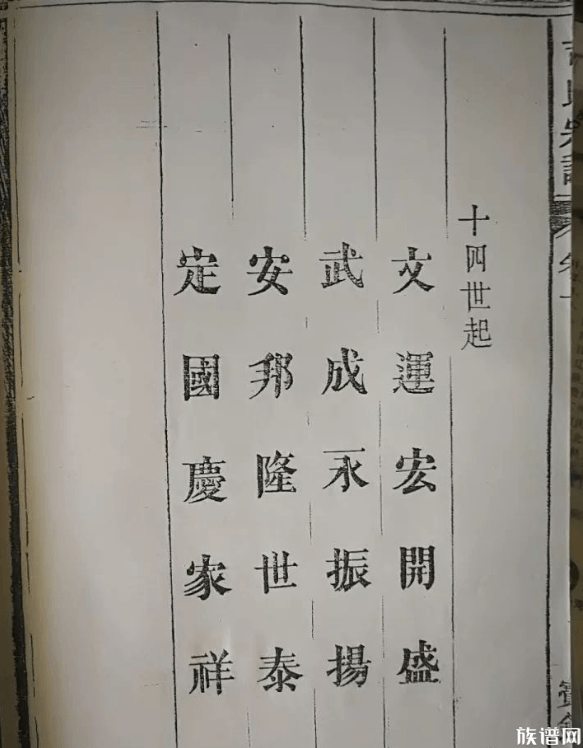 十四世起
文運宏開盛
武成永振揚
安邦隆世泰
定國慶家祥
族谱网